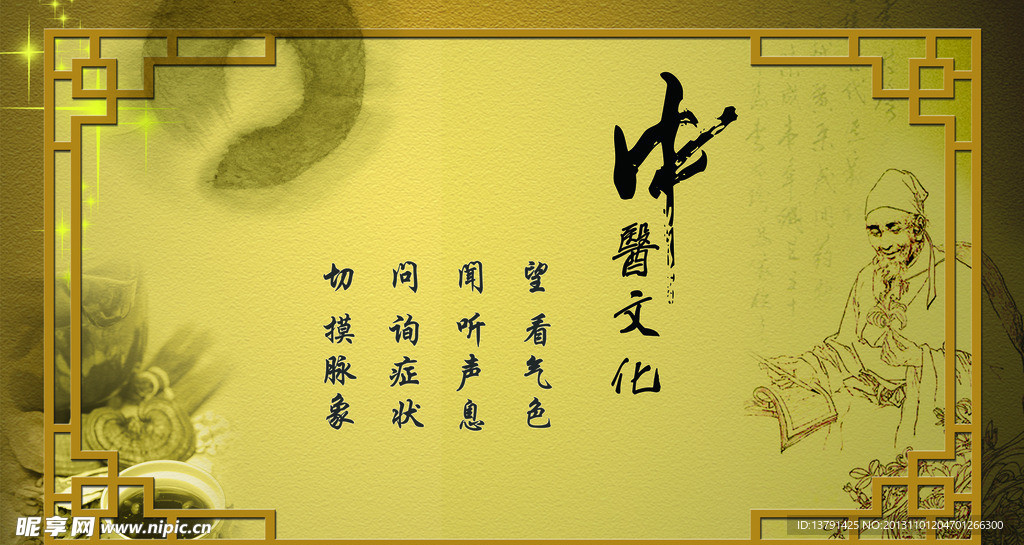 中醫文化
望 看气色
聞 听声息
问 询症状
切 摸脉象
昵享网 www.nipic.cn
ID:13791425 NO:20131101204701266300